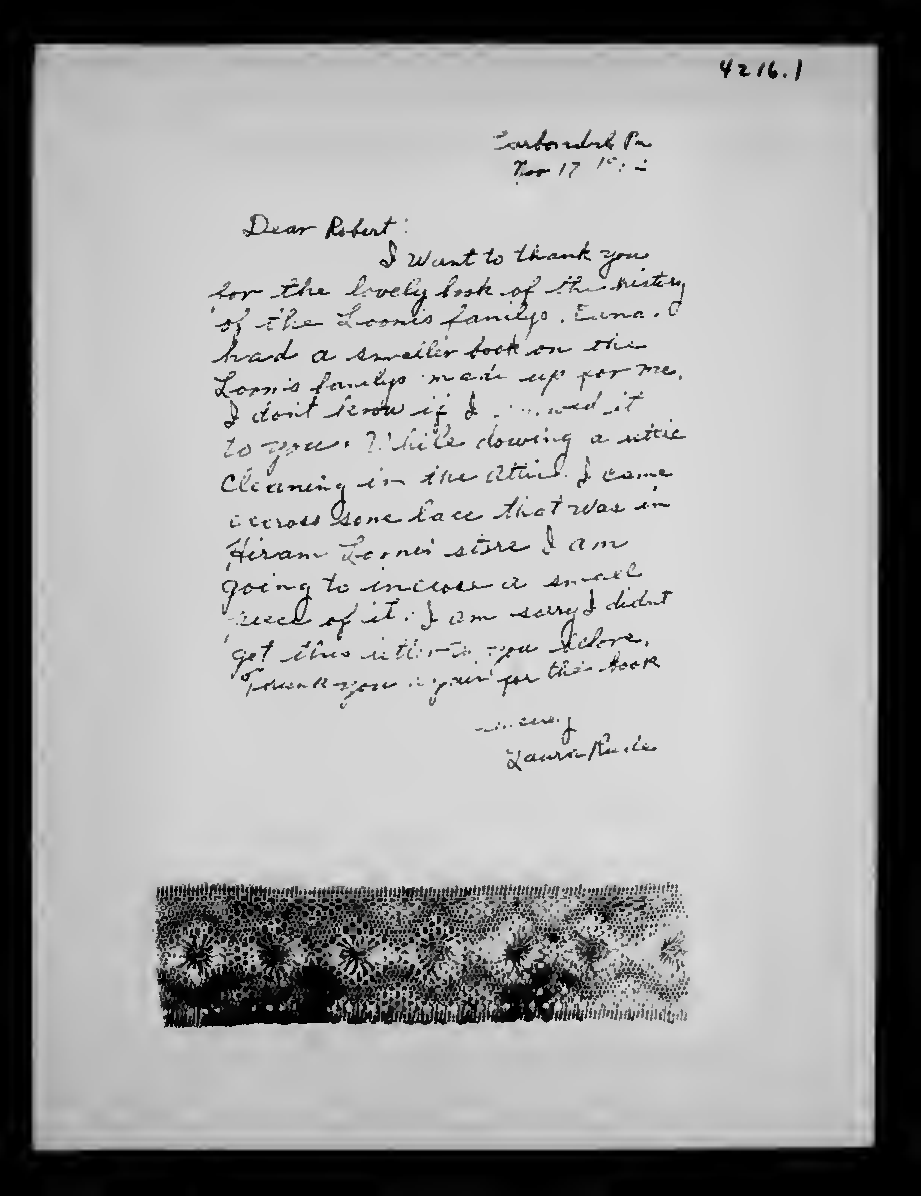 4216.1
Carbondale Pa
Nov 17
Dear Robert:
I Want to thank you
for the lovely book of the history
of the Loomis familys.
had a smaller book on the
Loomis familys made up for me.
I don't know if I it
to you. While dowing a
Cleaning in the attic. I came
accross some lace that was in
Hiram Loomis store I am
going to inclose a small
piece of it. I am sorry I didnt
get this to you before.
Thank you again for the book
Laura